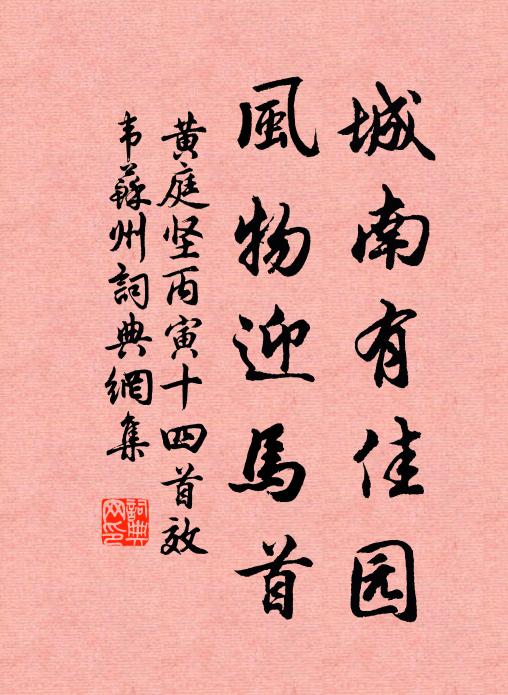 城南有佳园
風物迎馬首
黄庭坚丙寅十四首效
韦蘇州詞典網集
詞典網印